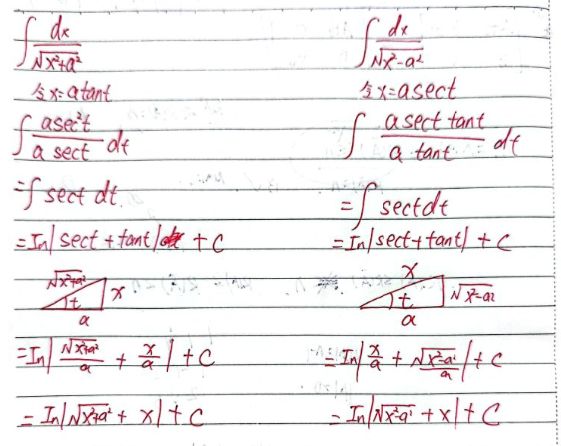 ∫ dx/√(x²+a²)
令x=atant
∫ asec²t/(a sect) dt
=∫ sect dt
=In|sect+tant| +C
√(x²+a²) x t a
=In|√(x²+a²)/a + x/a|+C
=In|√(x²+a²)+x|+C
∫ dx/√(x²-a²)
令x=asect
∫ a sect tant/(a tant) dt
=∫ sectdt
=In|sect+tant|+C
x t √(x²-a²) a
=In|x/a+√(x²-a²)/a|+C
=In|√(x²-a²)+x|+C